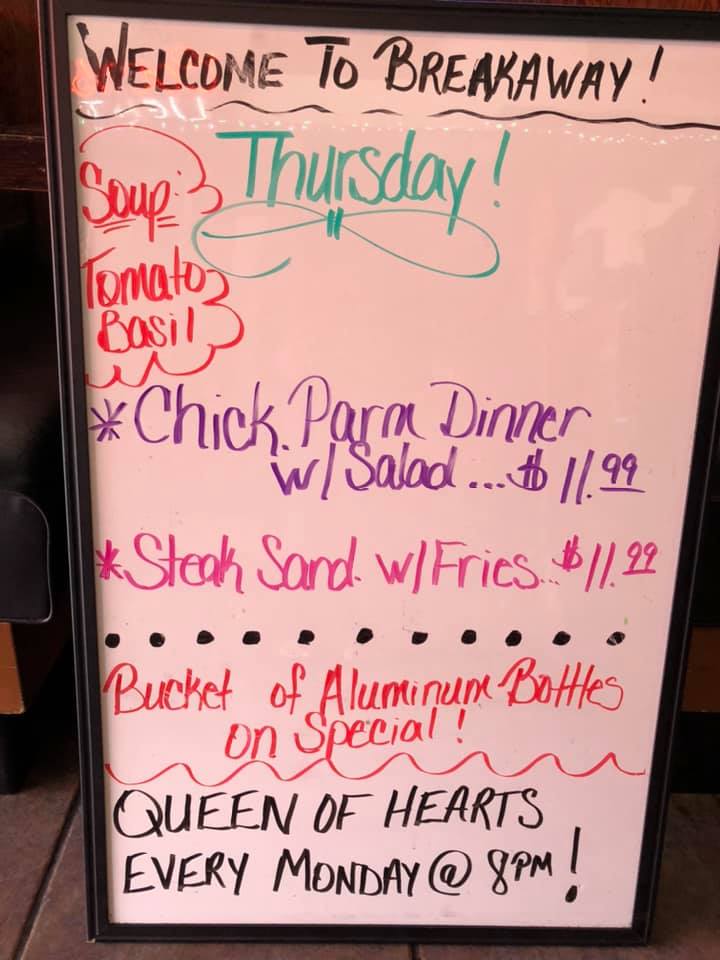 WELCOME TO BREAKAWAY!
Thursday!
Soup:
Tomato
Basil
*Chick. Parm Dinner
w/ Salad... $11.99
*Steak Sand. w/ Fries... $11.99
Bucket of Aluminum Bottles
on Special!
QUEEN OF HEARTS
EVERY MONDAY @ 8PM!